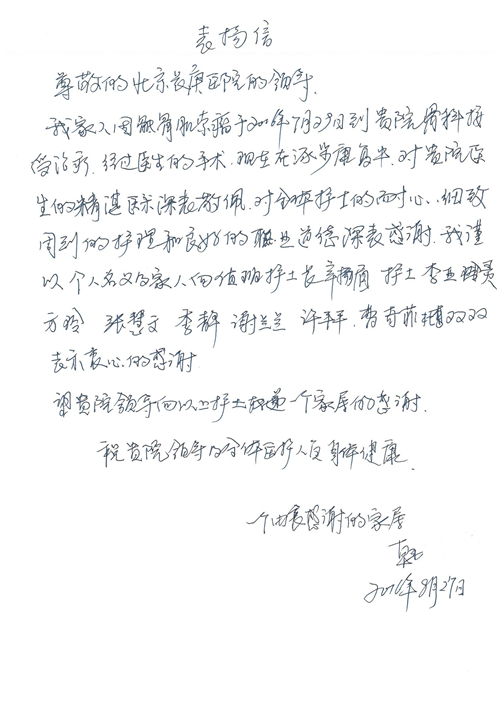 表扬信
尊敬的北京长庚医院的领导.
我家人因髋骨肌索瘤于2016年7月29日到贵院骨科接
受治疗, 经过医生的手术, 现在在逐步康复中. 对贵院医
生的精湛医术深表敬佩. 对全体护士的耐心、细致
周到的护理和良好的职业道德深表感谢. 我谨
以个人名义的家人向值班护士长辛 护士 李
方玲 张慧文 李静 谢兰兰 许苹苹. 曹奇菲 双双
表示衷心的感谢
望贵院领导向以上护士转递一个家居的感谢.
祝贵院领导及全体医护人员身体健康.
一个由衷感谢的家居
2016年8月27日